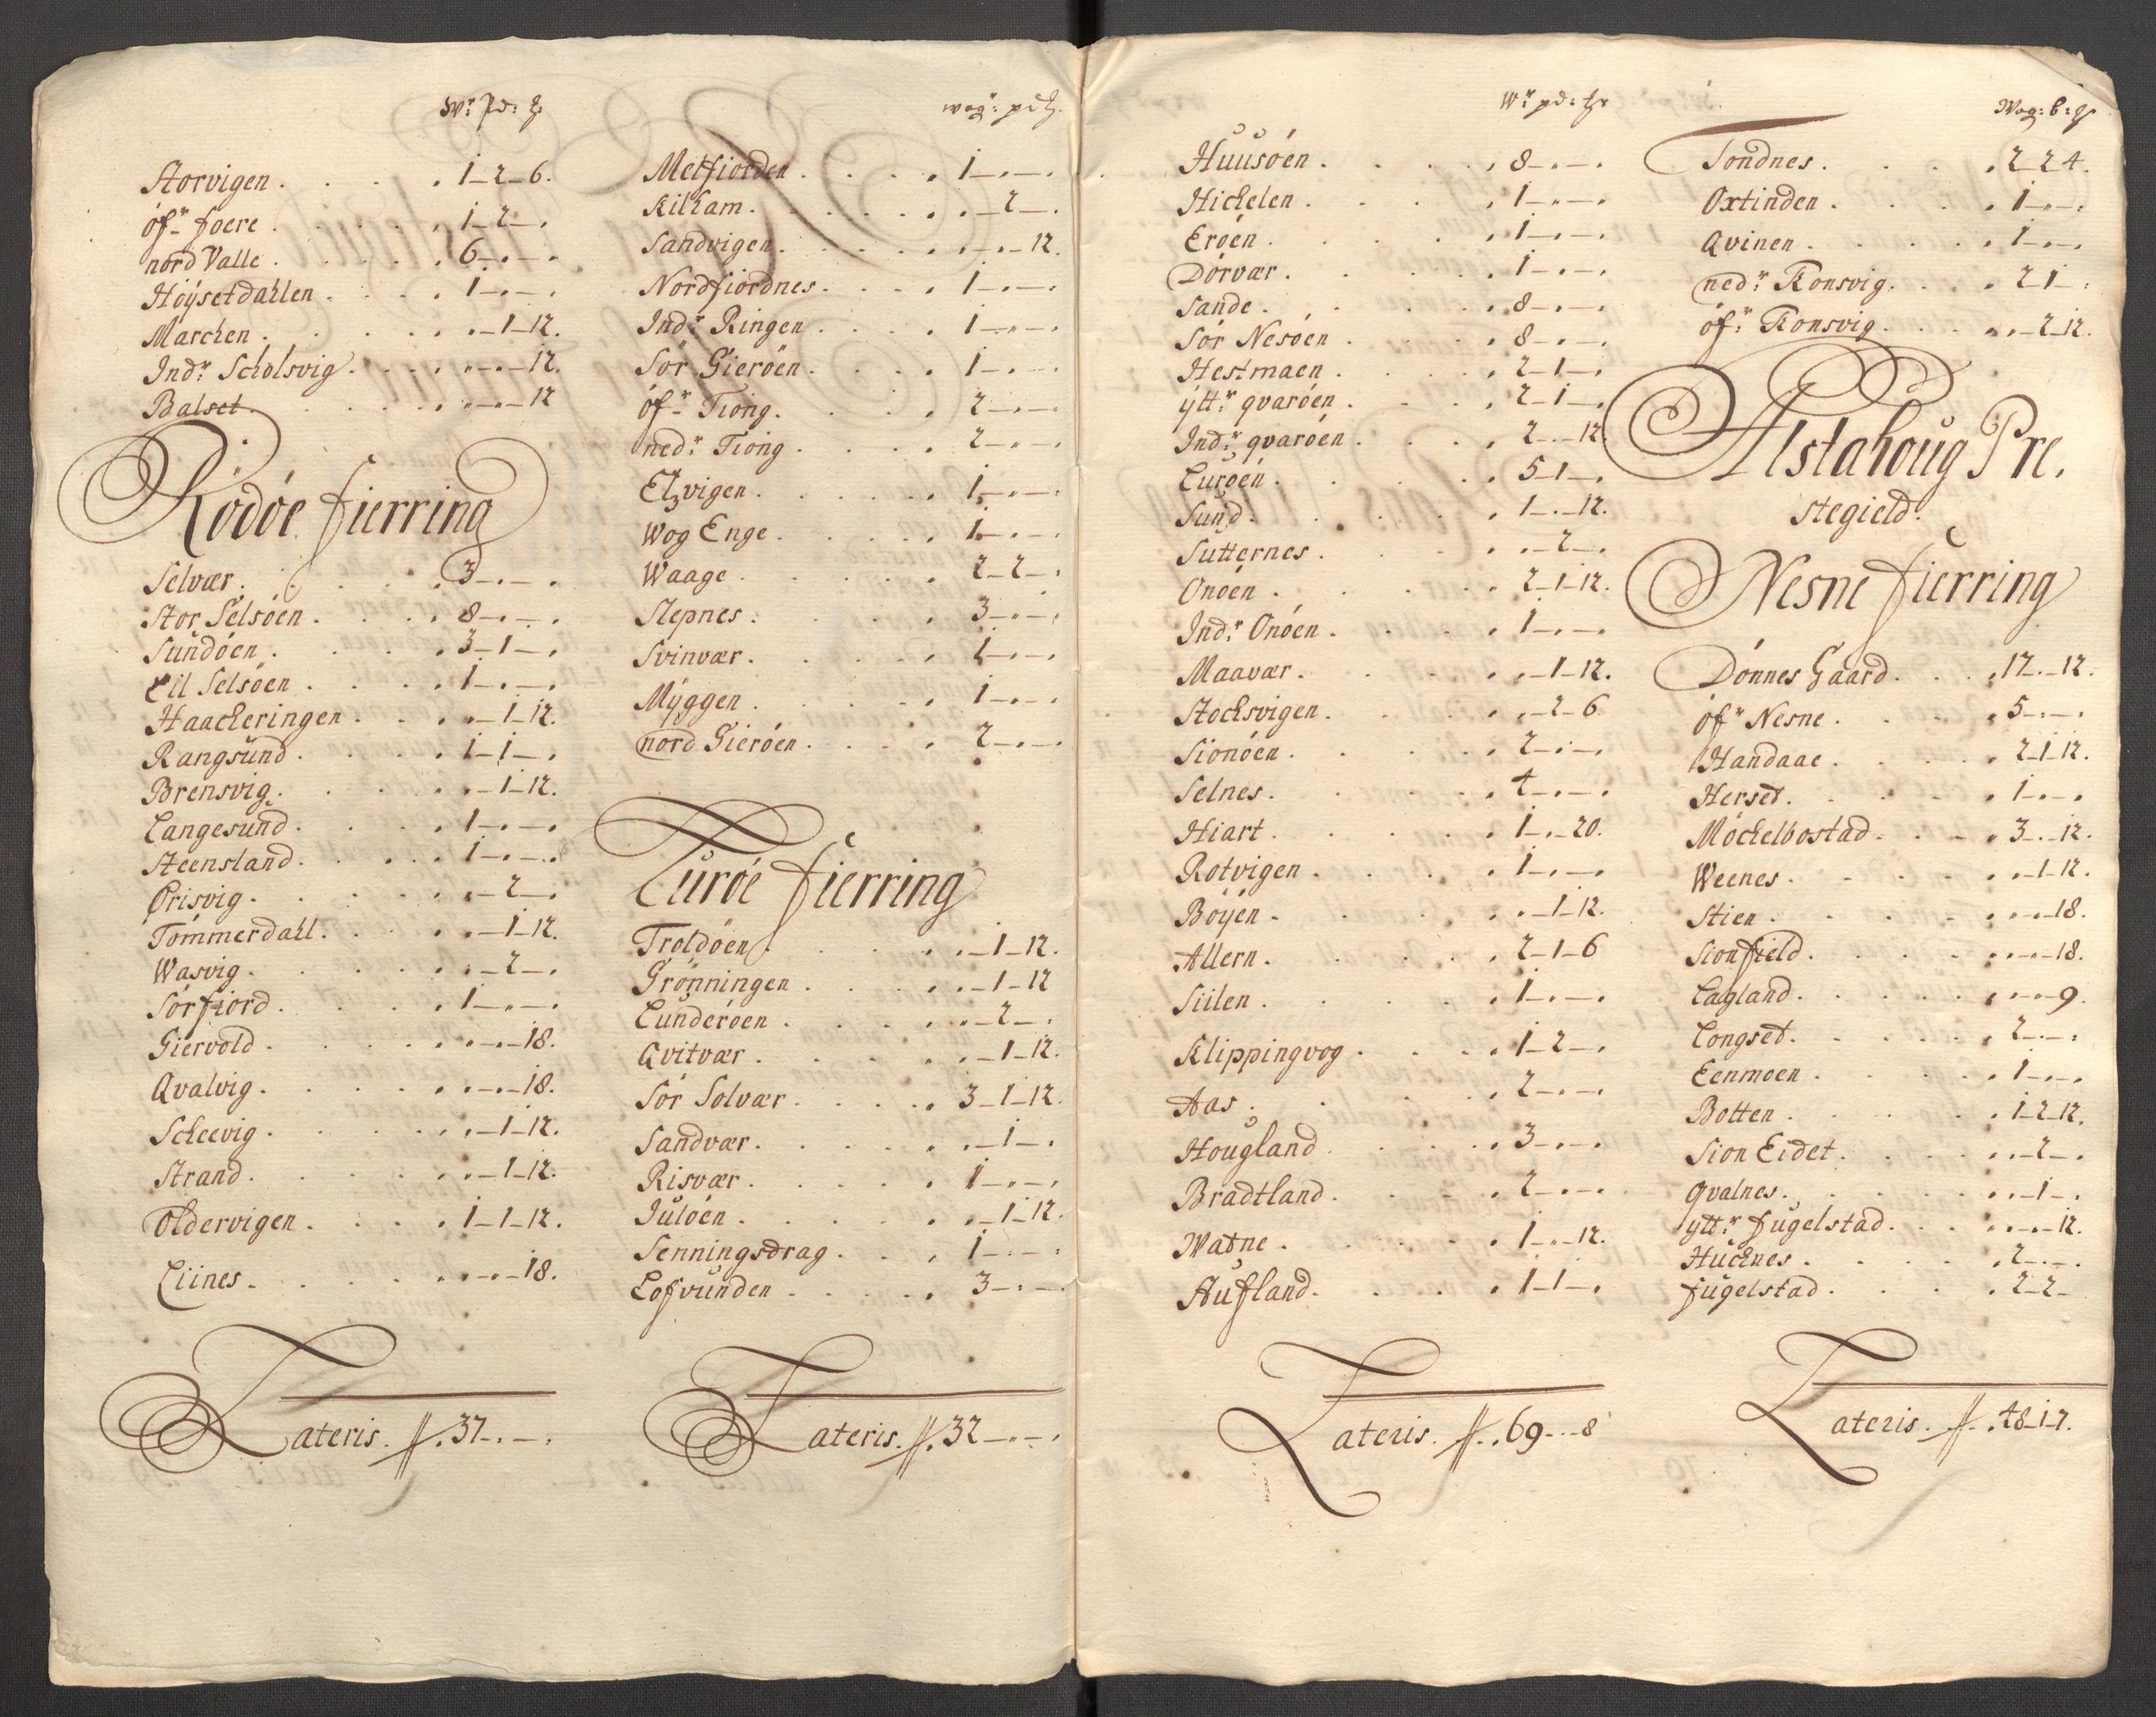 Wr: pd: ℔.
Storvigen . . . . . 1–2–6.
öfr foere . . . . . 1–2–.
nord Valle . . . . . 6–.–.
Höÿsetdahlen . . . . 1–.–.
Marchen . . . . . .–1–12.
Indr Scholsvig . . . . .–.–12.
Balset . . . . . .–.–12
Rödöe fierring
Selvær . . . . . 3–.–.
Stor Selsöen . . . . 8–.–.
Sundöen . . . . . 3–1–.
Lil Selsöen . . . . 1–.–.
Haackeringen . . . .–1–12.
Rangsund . . . . 1–1–.
Brensvig . . . . .–1–12.
Langesund . . . . 1–.–.
Steensland . . . . 1–.–.
Ørisvig . . . . .–2–.
Tömmerdahl . . . .–1–12.
Wasvig . . . . .–2–.
Sörfiord . . . . 1–.–.
Giervold . . . . .–.–18.
Qvalvig . . . . .–.–18.
Scheevig . . . . .–1–12.
Strand . . . . .–1–12.
Oldervigen . . . . 1–1–12.
Liines . . . . .–.–18.
Lateris ∬. 37–.–.
wogr: pd ℔.
Melfiorden . . . . 1–.–.
Kilham . . . . .–2–.
Sandvigen . . . . .–.–12.
Nordfiordnes . . . . 1–.–.
Indr Ringen . . . . 1–.–.
Sör Gieröen . . . . 1–.–.
öfr Tiong . . . . 2–.–.
nedr Tiong . . . . 2–.–.
Elzvigen . . . . 1–.–.
Wog Enge . . . . 1–.–.
Waage . . . . 2–2–.
Slepnes . . . . 3–.–.
Svinvær . . . . 1–.–.
Mÿggen . . . . 1–.–.
nord Gieröen . . . . 2–.–.
Luröe fierring
Troldöen . . . . .–1–12.
Grönningen . . . . .–1–12
Lunderöen . . . . .–2–.
Qvitvær . . . . .–1–12.
Sör Solvær . . . . 3–1–12.
Sandvær . . . . .–1–.
Risvær . . . . 1–.–.
Julöen . . . . .–1–12.
Senningsdrag . . . 1–.–.
Lofvunden . . . . 3–.–.
Lateris. ∬. 32–.–.
Wr pd: ℔
Huusöen . . . . 8–.–.
Hickelen . . . . 1–.–.
Eröen . . . . 1–.–.
Dörvær . . . . 1–.–.
Sande . . . . 8–.–.
Sör Nesöen . . . . 8–.–.
Hestmaen . . . . 2–1–.
ÿttr qvaröen . . . . 2–1–.
Indr qvaröen . . . . 2–.–12.
Luröen . . . . 5–1–.
Sund . . . . 1–.–12.
Sutternes . . . . .–2–.
Onöen . . . . 2–1–12.
Indr Onöen . . . . 1–.–.
Maavær . . . . .–1–12.
Stochsvigen . . . . .–2–6
Sionöen . . . . 2–.–.
Selnes . . . . 4–.–.
Hiart . . . . 1–.–20.
Rotvigen . . . . 1–.–.
Böÿen . . . . .–1–12.
Allern . . . . 2–1–6
Siilen . . . . 1–.–.
Klippingvog . . . . 1–2–.
Aas . . . . 2–.–.
Hougland . . . . 3–.–.
Bradtland . . . . 2–.–.
Watne . . . . 1–.–12.
Aufland . . . . 1–1–.
Lateris. ∬. 69–.–8
Wog: b: ℔
Tondnes . . . . 2 2 4.
Oxtinden . . . . 1–.–.
Qvinen . . . . 1–.–.
nedr Ronsvig . . . . 2 1–.
öfr Ronsvig . . . . .–2–12.
Alstahoug Pre,
stegield.
Nesne fierring
Dönnes Gaard . . . 17–.–12.
öfr Nesne . . . . 5–.–.
Handaae . . . . 2–1–12.
Herset . . . . 1–.–.
Möckelbostad . . . . 3–.–12.
Weenes . . . . .–1–12.
Stien . . . . .–.–18.
Sionfield . . . . .–.–18.
Lagland . . . . .–.–9.
Longset . . . . 2–.–.
Eenmoen . . . . 1–.–.
Botten . . . . 1–2–12.
Sion Eidet . . . . .–2–.
Qvalnes . . . . .–1–.
ÿttr fugelstad . . . .–.–12.
Hucknes . . . . 2–.–.
fugelstad . . . . 2–2–
Lateris. ∬. 48–1–7.